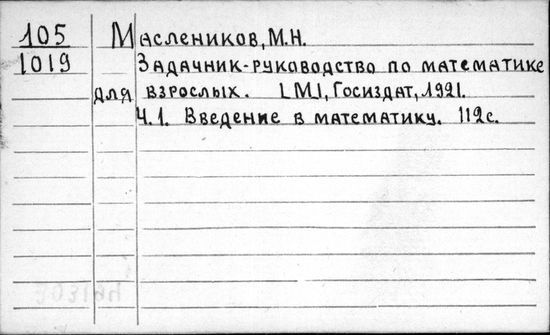 105 Маслеников, М.Н.
1019 Задачник-руководство по математике
для взрослых. [М], Госиздат, 1921.
Ч.1. Введение в математику. 112с.